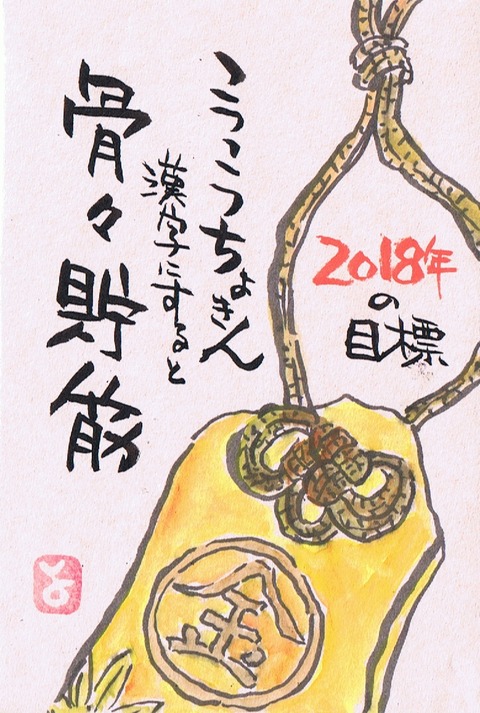 2018年
の
目標
こつこつちょきん
漢字にすると
骨々貯筋
金
と